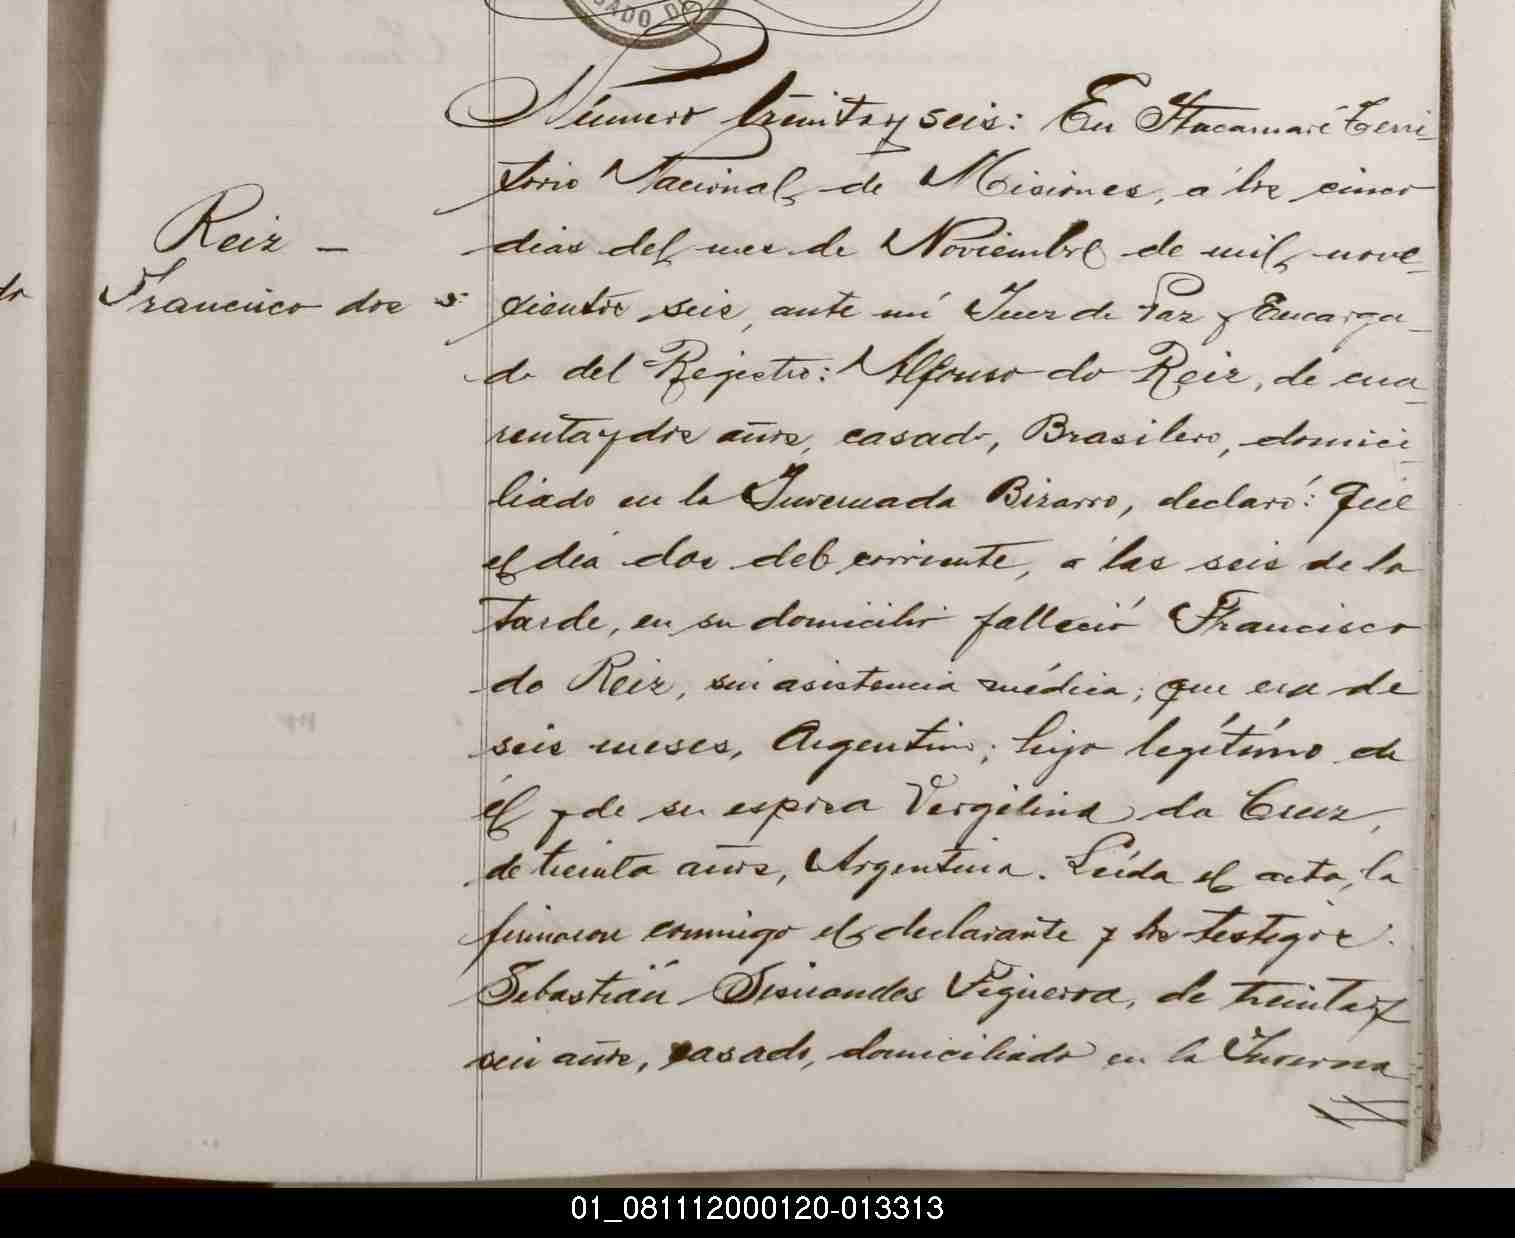 GADO DE
Número treinta y seis: En Itacaruaré Terri-
torio Nacional de Misiones, a los cinco
Reiz -
dias del mes de Noviembre de mil nove-
Francisco dos
cientos seis, ante mí Juez de Paz y Encarga-
do del Registro: Alfonso do Reiz, de cua-
renta y dos años, casado, Brasilero, domici-
liado en la Invernada Bizarro, declaró: Que
el día dos del corriente, a las seis de la
tarde, en su domicilio falleció Francisco
do Reiz, sin asistencia médica; que era de
seis meses, Argentino; hijo legítimo de
él y de su esposa Vergilina da Cruz,
de treinta años, Argentina. Leída el acta, la
firmaron conmigo el declarante y los testigos.
Sebastián Sisnandes Figueroa, de treinta y
seis años, casado, domiciliado en la Inverna
01_081112000120-013313